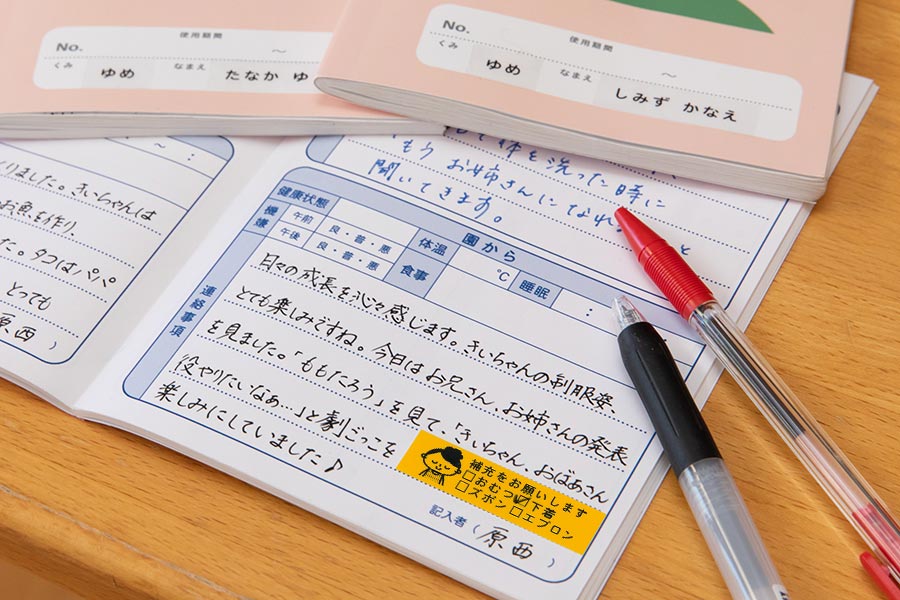 No.
使用期間
～
くみ ゆめ なまえ たなか ゆ
No.
使用期間
～
くみ ゆめ なまえ しみず かなえ
～ :
りました。きいちゃんは
お魚を作り、
た。タコはパパ
とても
原西 )
体を洗った時に
もう お姉さんになれ
聞いてきます。
健康状態
園から
機嫌
午前 良・普・悪
午後 良・普・悪
体温 ℃
食事
睡眠 :
連絡事項
日々の成長を感じます。きいちゃんの制服姿
とても楽しみですね。今日はお兄さん、お姉さんの発表
を見ました。「ももたろう」を見て、「きいちゃん、おばあさん
役やりたいなぁ…」と劇ごっこを
楽しみにしていました♪
補充をお願いします
□おむつ☑下着
□ズボン□エプロン
記入者 ( 原西 )